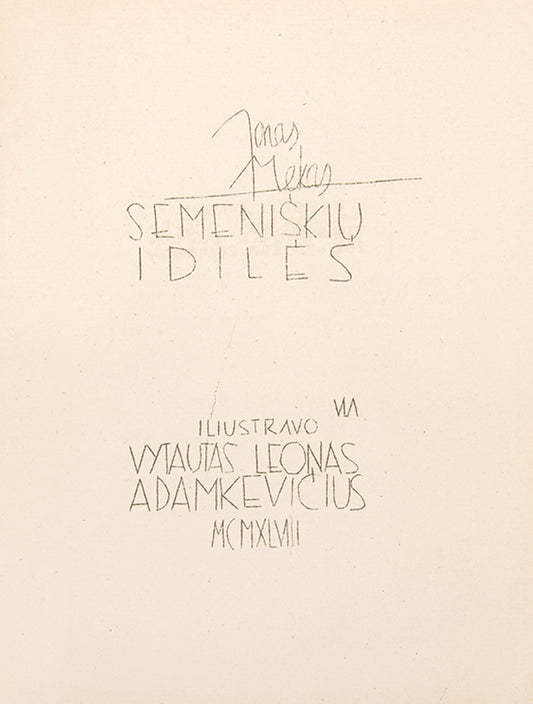 Jonas
Mekas
SEMENIŠKIŲ
IDILĖS
VLA
ILIUSTRAVO
VYTAUTAS LEONAS
ADAMKEVIČIUS
MCMXLVIII